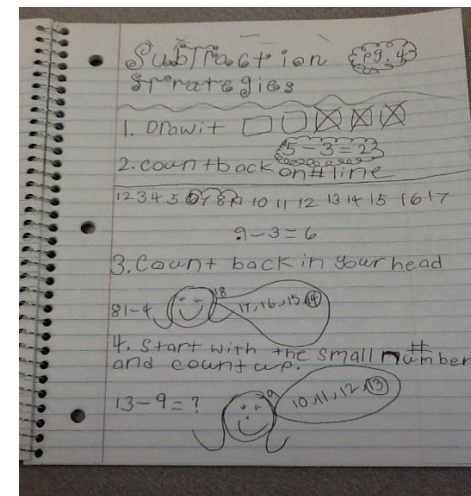 Subtraction pg. 4
Strategies
1. Draw it
5-3=2
2. count back on # line
1 2 3 4 5 6 7 8 9 10 11 12 13 14 15 16 17
9-3=6
3. Count back in your head
18
81-4 17, 16, 15, 14
4. Start with the small number #
and count up.
9
13-9=? 10, 11, 12, 13